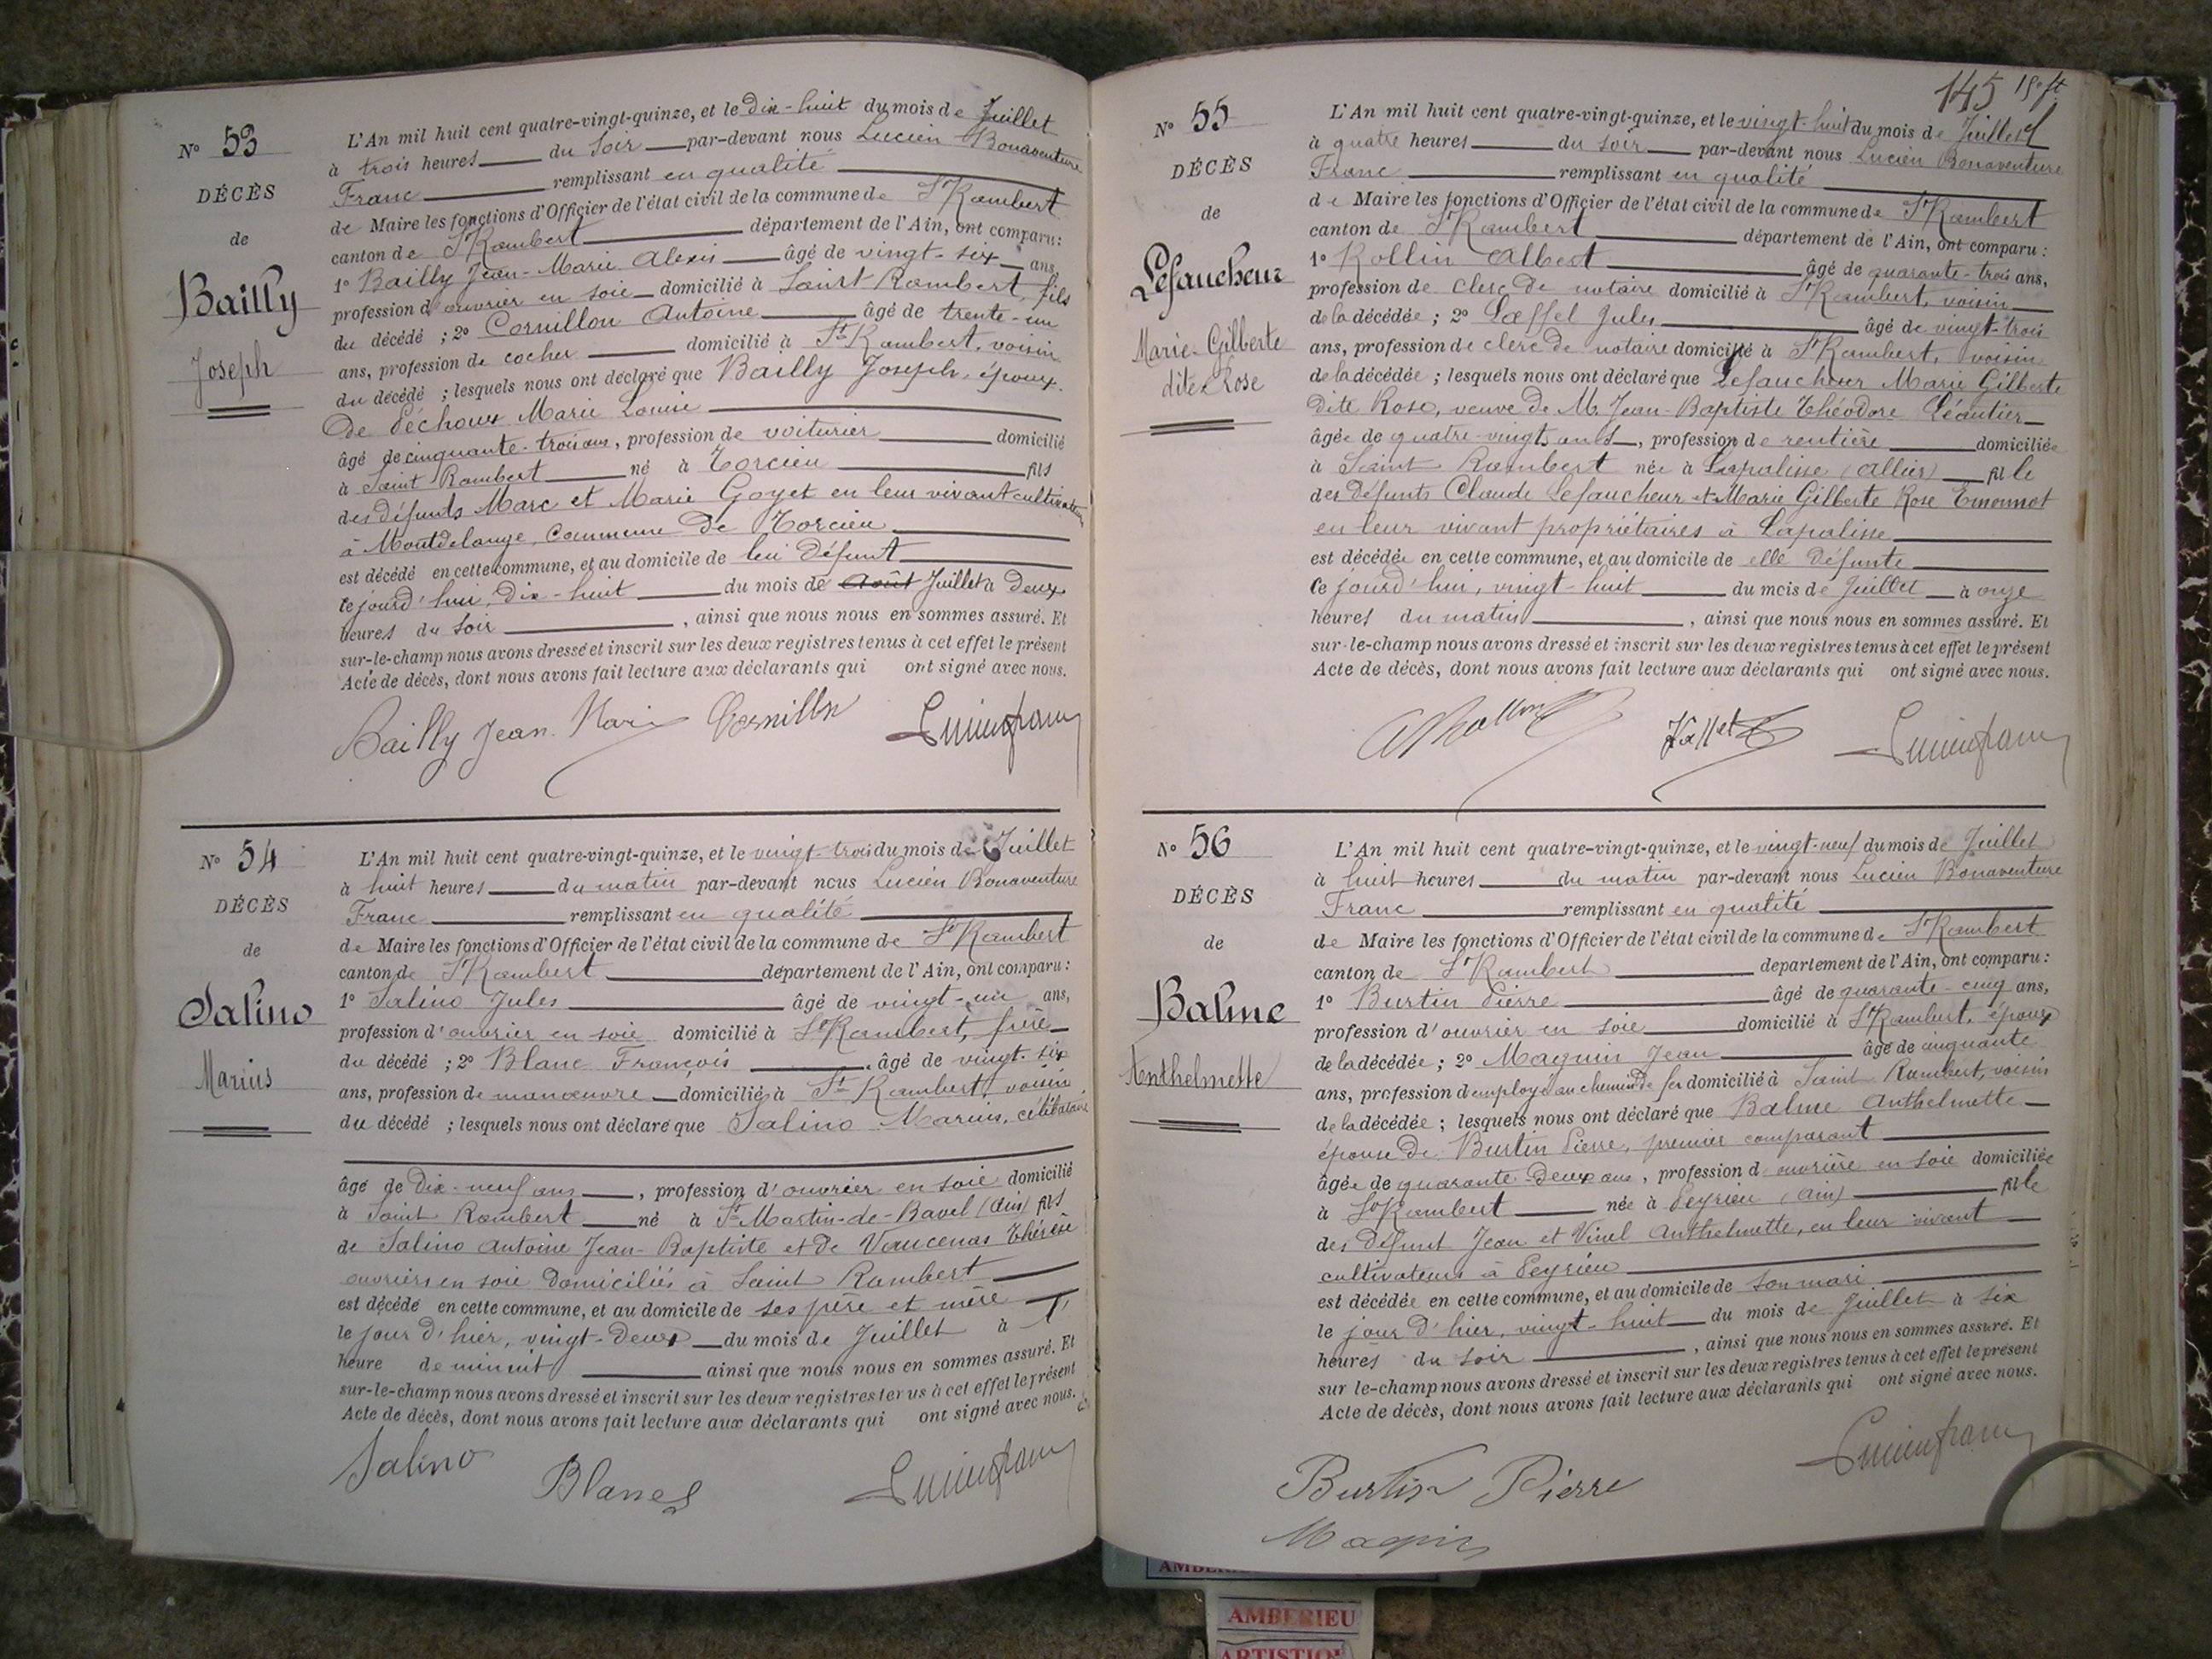 N° 53
DÉCÈS
de
Bailly
Joseph
L'An mil huit cent quatre-vingt-quinze, et le dix-huit du mois de Juillet
à trois heures du soir par-devant nous Lucien Bonaventure
Franc remplissant en qualité
de Maire les fonctions d'Officier de l'état civil de la commune de St Rambert
canton de St Rambert département de l'Ain, ont comparu :
1° Bailly Jean-Marie Alexis âgé de vingt-six ans,
profession d'ouvrier en soie domicilié à Saint Rambert, fils
du décédé ; 2° Cornillon Antoine âgé de trente-un
ans, profession de cocher domicilié à St Rambert, voisin
du décédé ; lesquels nous ont déclaré que Bailly Joseph, époux
De Péchoux Marie Louise
âgé de cinquante-trois ans, profession de voiturier domicilié
à Saint Rambert né à Torcieu fils
des défunts Marc et Marie Goyet en leur vivant cultivateurs
à Montdelange, Commune de Torcieu
est décédé en cette commune, et au domicile de lui défunt
ce jourd'hui, dix-huit du mois de Août Juillet à deux
heures du soir , ainsi que nous nous en sommes assuré. Et
sur-le-champ nous avons dressé et inscrit sur les deux registres tenus à cet effet le présent
Acte de décès, dont nous avons fait lecture aux déclarants qui ont signé avec nous.
Bailly Jean Marie Cornillon Lucien franc
N° 54
DÉCÈS
de
Salino
Marius
L'An mil huit cent quatre-vingt-quinze, et le vingt-trois du mois de Juillet
à huit heures du matin par-devant nous Lucien Bonaventure
Franc remplissant en qualité
de Maire les fonctions d'Officier de l'état civil de la commune de St Rambert
canton de St Rambert département de l'Ain, ont comparu :
1° Salino Jules âgé de vingt-un ans,
profession d'ouvrier en soie domicilié à St Rambert, frère
du décédé ; 2° Blanc François âgé de vingt-six
ans, profession de manœuvre domicilié à St Rambert, voisin
du décédé ; lesquels nous ont déclaré que Salino Marius, célibataire
âgé de dix-neuf ans , profession d'ouvrier en soie domicilié
à Saint Rambert né à St Martin-de-Bavel (Ain) fils
de Salino Antoine Jean-Baptiste et de Vaucenas Thérèse
ouvriers en soie domiciliés à Saint Rambert
est décédé en cette commune, et au domicile de ses père et mère
le jour d'hier, vingt-deux du mois de Juillet à l'
heure de minuit ainsi que nous nous en sommes assuré. Et
sur-le-champ nous avons dressé et inscrit sur les deux registres tenus à cet effet le présent
Acte de décès, dont nous avons fait lecture aux déclarants qui ont signé avec nous.
Salino Blanc Lucien franc
145
N° 55
DÉCÈS
de
Lefaucheur
Marie-Gilberte
dite Rose
L'An mil huit cent quatre-vingt-quinze, et le vingt-huit du mois de Juillet
à quatre heures du soir par-devant nous Lucien Bonaventure
Franc remplissant en qualité
de Maire les fonctions d'Officier de l'état civil de la commune de St Rambert
canton de St Rambert département de l'Ain, ont comparu :
1° Rollin Albert âgé de quarante-trois ans,
profession de clerc de notaire domicilié à St Rambert, voisin
de la décédée ; 2° Jules âgé de vingt-trois
ans, profession de clerc de notaire domicilié à St Rambert, voisin
de la décédée ; lesquels nous ont déclaré que Lefaucheur Marie Gilberte
dite Rose, veuve de M. Jean-Baptiste Théodore Léautier
âgée de quatre-vingts ans , profession de rentière domiciliée
à Saint Rambert née à Lapalisse (Allier) fille
des défunts Claude Lefaucheur et Marie Gilberte Rose Emonnot
en leur vivant propriétaires à Lapalisse
est décédée en cette commune, et au domicile de elle défunte
ce jourd'hui, vingt-huit du mois de Juillet à onze
heures du matin , ainsi que nous nous en sommes assuré. Et
sur-le-champ nous avons dressé et inscrit sur les deux registres tenus à cet effet le présent
Acte de décès, dont nous avons fait lecture aux déclarants qui ont signé avec nous.
A Rollin Lucien franc
N° 56
DÉCÈS
de
Balme
Anthelmette
L'An mil huit cent quatre-vingt-quinze, et le vingt-neuf du mois de Juillet
à huit heures du matin par-devant nous Lucien Bonaventure
Franc remplissant en qualité
de Maire les fonctions d'Officier de l'état civil de la commune de St Rambert
canton de St Rambert département de l'Ain, ont comparu :
1° Burtin Pierre âgé de quarante-cinq ans,
profession d'ouvrier en soie domicilié à St Rambert, époux
de la décédée ; 2° Magnin Jean âgé de cinquante
ans, profession d'employé au chemin de fer domicilié à Saint Rambert, voisin
de la décédée ; lesquels nous ont déclaré que Balme Anthelmette
épouse de Burtin Pierre, premier comparant
âgée de quarante-deux ans , profession d'ouvrière en soie domiciliée
à St Rambert née à Peyrieu (Ain) fille
des défunt Jean et Vinel Anthelmette, en leur vivant
cultivateurs à Peyrieu
est décédée en cette commune, et au domicile de son mari
le jour d'hier, vingt-huit du mois de Juillet à six
heures du soir , ainsi que nous nous en sommes assuré. Et
sur le-champ nous avons dressé et inscrit sur les deux registres tenus à cet effet le présent
Acte de décès, dont nous avons fait lecture aux déclarants qui ont signé avec nous.
Burtin Pierre Lucien franc
Magnin
AMBERIEU
ARTISTIQ